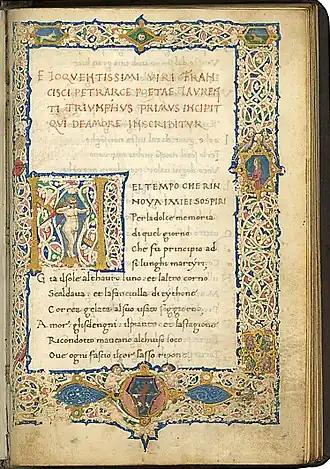 ELOQVENTISSIMI VIRI FRAN
CISCI PETRARCE POETAE LAVREN
TI TRIVMPHVS PRIMVS INCIPIT
QVI DE AMORE INSCRIBITVR
NEL TEMPO CHE RIN
NOVA I MIEI SOSPIRI
Per la dolce memoria
di quel giorno
Che fu principio ad
si lunghi martyri
Gia il sole al thauro luno et laltro corno
Scaldaua et la fanciulla di tythone
Correa gelata al suo usato soggiorno
Amor gli sdegni il pianto et la stagione
Ricondotto maueano al chiuso loco
Oue ogni fascio il cor lasso ripone